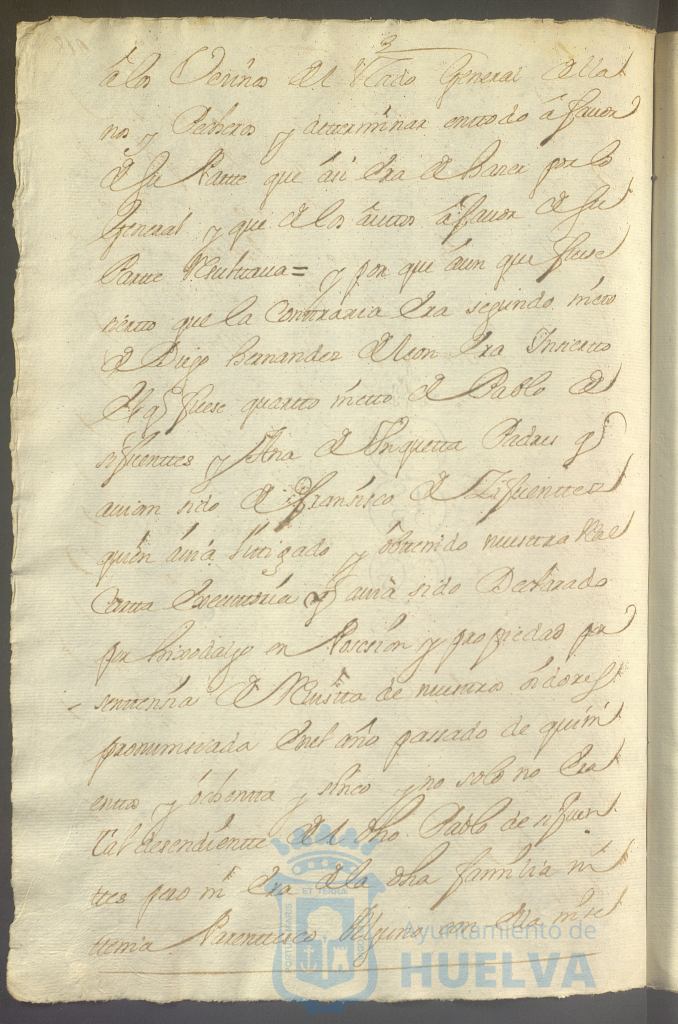 a los Vecinos del estado General de lla
nos y Pecheros y determinar en todo a favor
de su Parte que asi era de hazer por lo
General y que de los autos a favor de su
Parte Resultaua = y por que aun que fuese
zierto que la Contraria era segundo nieto
de Diego hernandez de leon era Inzierto
el q fuese quarto nieto de Pablo de
sifuenttes y Ana de Padres q
auian sido de Fransisco de Zifuenttes
quien auia litigado y obtenido nuestra Real
Cartta Executtoria q auia sido Declarado
por hixodalgo en Posesion y propiedad por
senttensia de Reuista de nuestros oidores
pronunsiada en el año passado de quini
enttos y ochentta y sinco y no solo no era
tal desendientte del dho Pablo de sifuen
ttes pero ni era de la dha familia ni
ttenia Parenttesco alguno con ella ni se
Ayuntamiento de
HUELVA